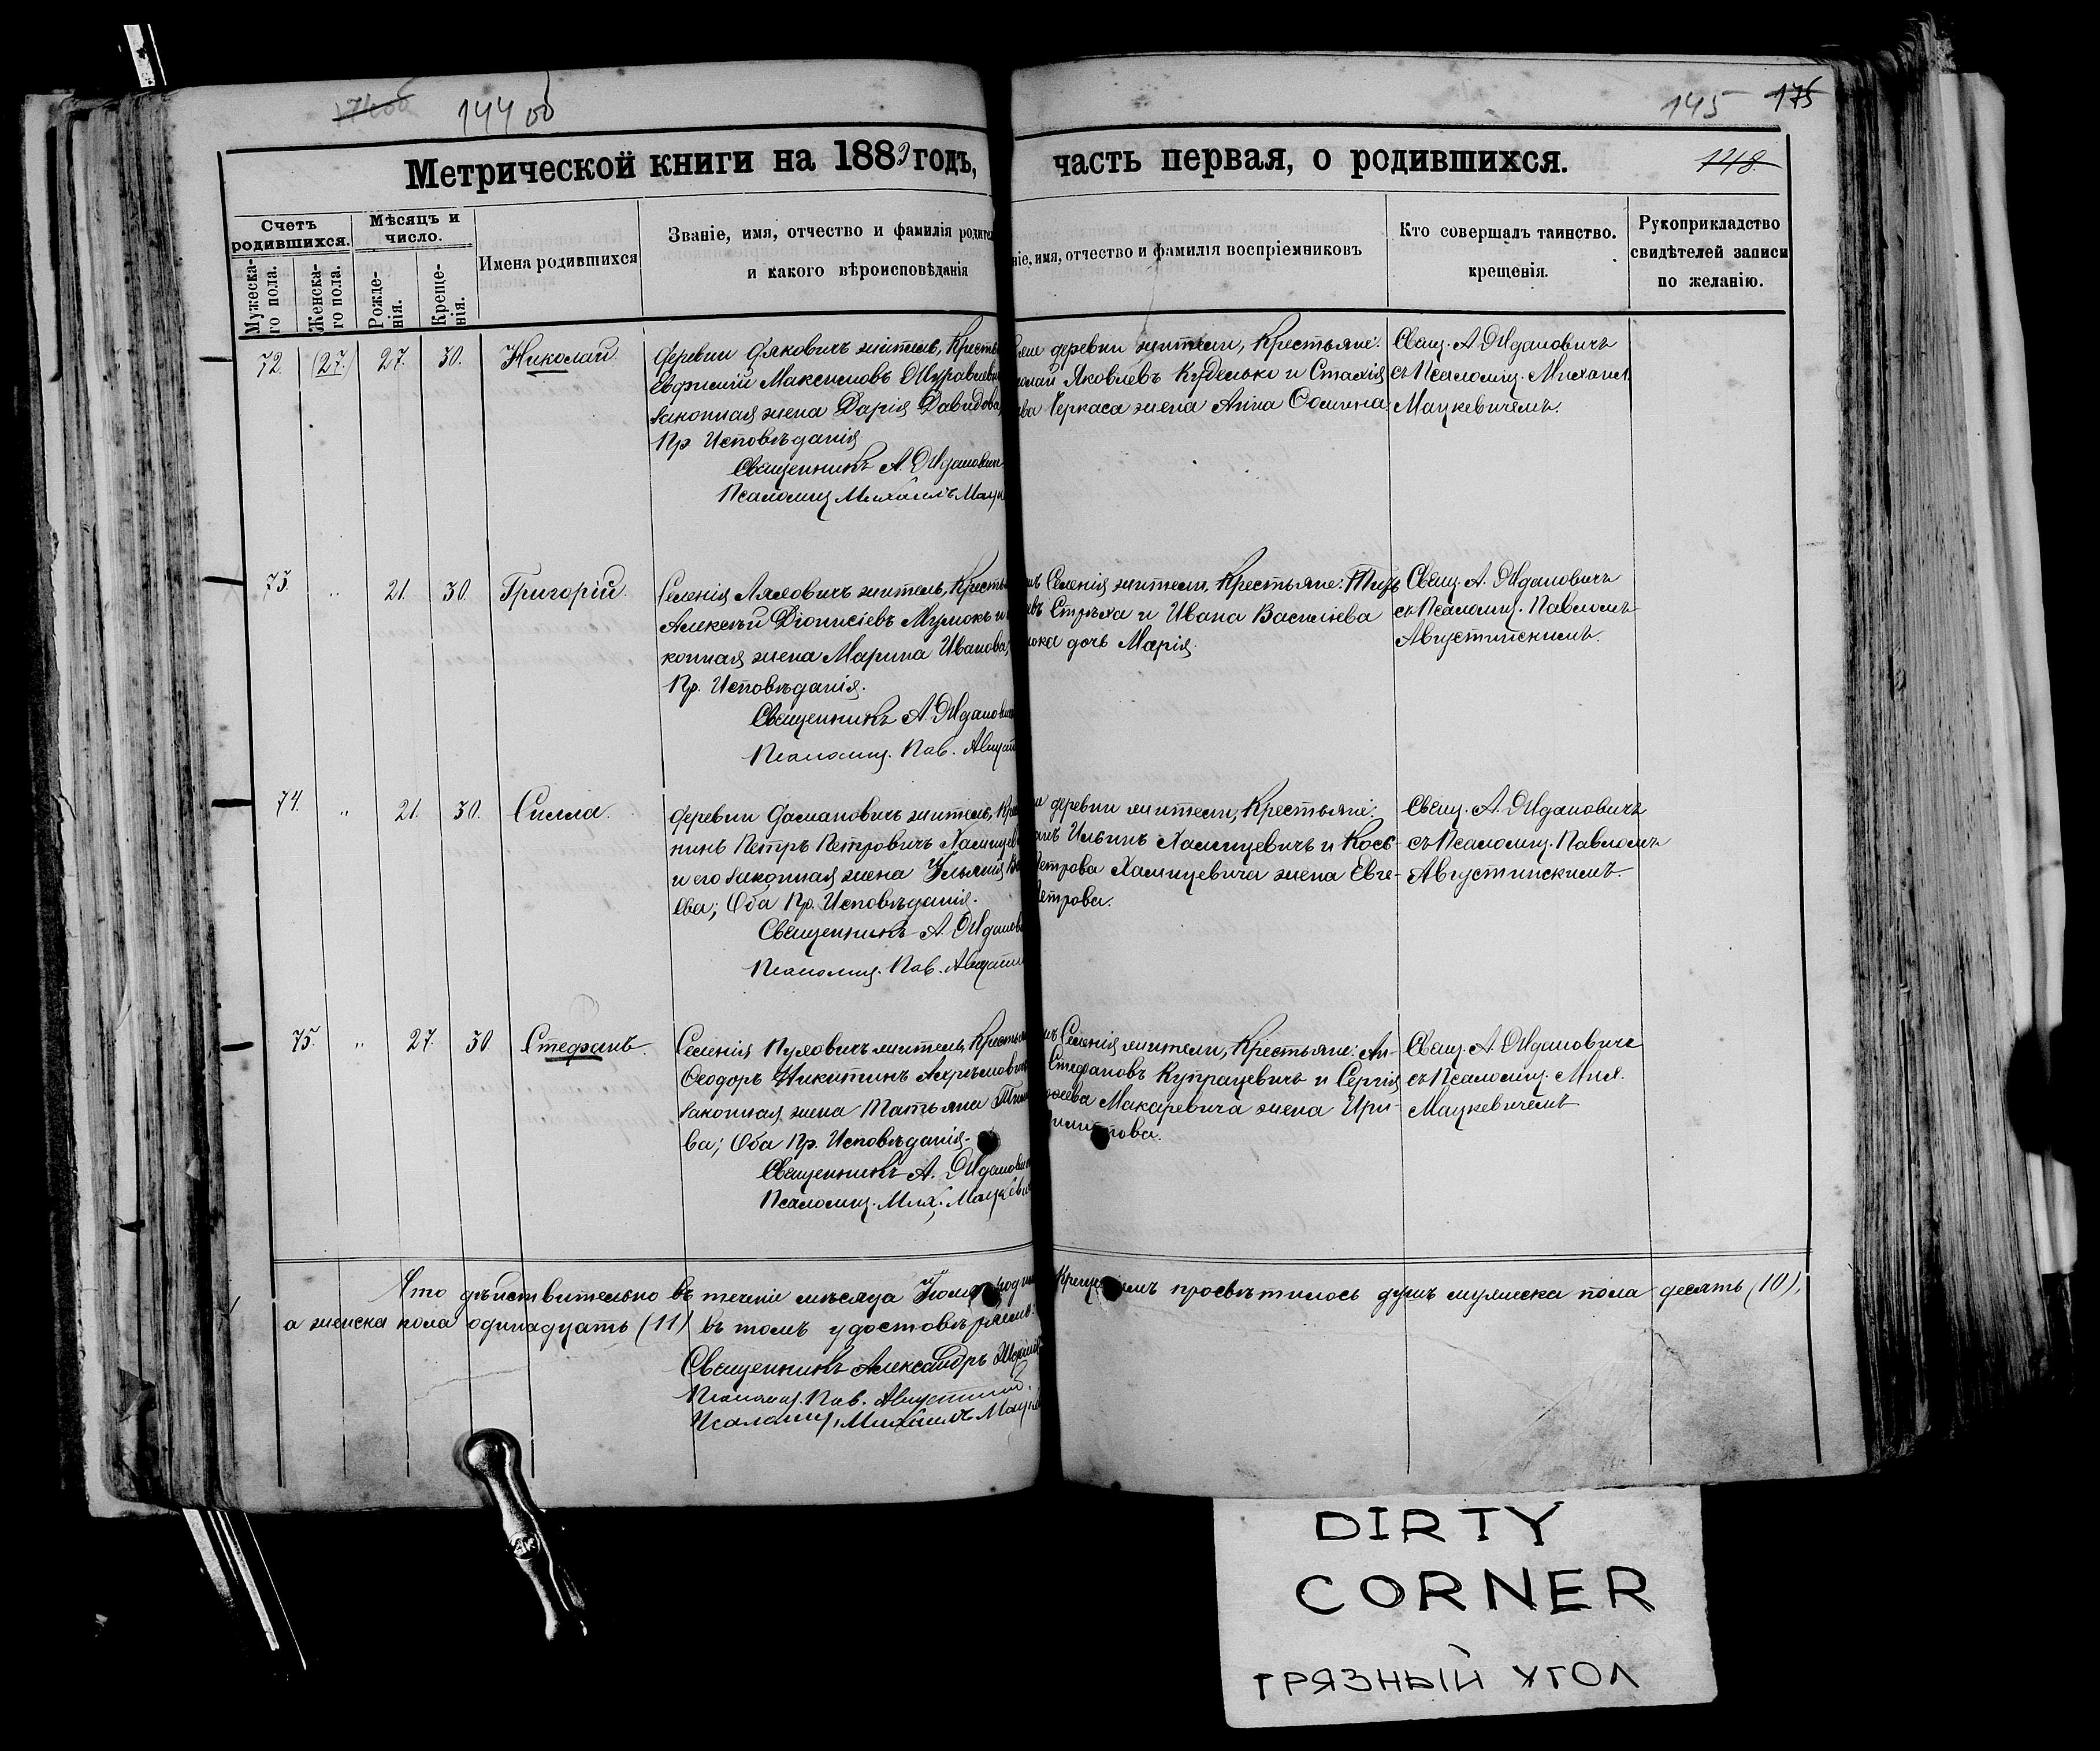 144 об
145 175
Метрической книги на 1889 годъ, часть первая, о родившихся.
148.
Счетъ родившихся.
Мѣсяцъ и число.
Имена родившихся
Званіе, имя, отчество и фамилія родител
и какого вѣроисповѣданія
ніе, имя, отчество и фамилія воспріемниковъ
Кто совершалъ таинство.
крещенія.
Рукоприкладство
свидѣтелей записи
по желанію.
Мужеска-
го пола.
Женска-
го пола.
Рожде-
нія.
Креще-
нія.
72. (27.) 27. 30. Николай.
деревни Дяковичъ житель, Кресть
Евфимій Максимовъ Журавлеви
законная жена Дарія Давидова,
Пр Исповѣданія
Священникъ А. Жданович
Псаломщ Михаилъ Мацк
деревни жители, Крестьяне:
колай Яковлевъ Куделько и Стахія
ва Черкаса жена Анна Сомина
Свящ. А. Ждановичъ
съ Псаломщ. Михаил.
Мацкевичемъ.
73. " 21. 30. Григорій.
Селенія Ляховичъ житель, Кресть
Алексѣй Діонисіевъ Мулюкъ и
конная жена Марина Иванова;
Пр. Исповѣданія.
Священникъ А. Жданови
Псаломщ. Пав. Августи
Селенія жители, Крестьяне: Титъ
въ Стрѣха и Ивана Васильева
юка дочь Марія.
Свящ. А. Ждановичъ
съ Псаломщ. Павломъ
Августинскимъ.
74. " 21. 30. Силла.
деревни Домановичъ житель, Кре
нинъ Петръ Петровичъ Халицев
и его законная жена Ульянія Ва
ева; Оба Пр. Исповѣданія.
Священникъ А. Жданов
Псаломщ. Пав. Августи
деревни жители, Крестьяне:
анъ Ильинъ Халицевичъ и Кось-
Петрова Халицевича жена Евге-
Петрова.
Свящ. А. Ждановичъ
съ Псаломщ. Павломъ
Августинскимъ.
75. " 27. 30 Стефанъ.
Селенія Пуховичъ житель, Крестья
Ѳеодоръ Никитинъ Ахрѣмович
законная жена Татьяна Тим
ва; Оба Пр. Исповѣданія.
Священникъ А. Жданович
Псаломщ. Мих. Мацкевич
Селенія жители, Крестьяне: Ан-
Стефановъ Купрацевичъ и Сергія
Макаревича жена Ири-
Свящ. А. Ждановичъ
съ Псаломщ. Мих.
Мацкевичемъ
Что дѣйствительно въ теченіи мѣсяца Крещеніемъ просвѣтилось душъ мужеска пола десять (10),
а женска пола одинадцать (11) въ томъ удостовѣряемъ:
Священникъ Александръ Ждан
Псаломщ. Пав. Августинск.
Псаломщ. Михаилъ Мацк
DIRTY
CORNER
ГРЯЗНЫЙ УГОЛ